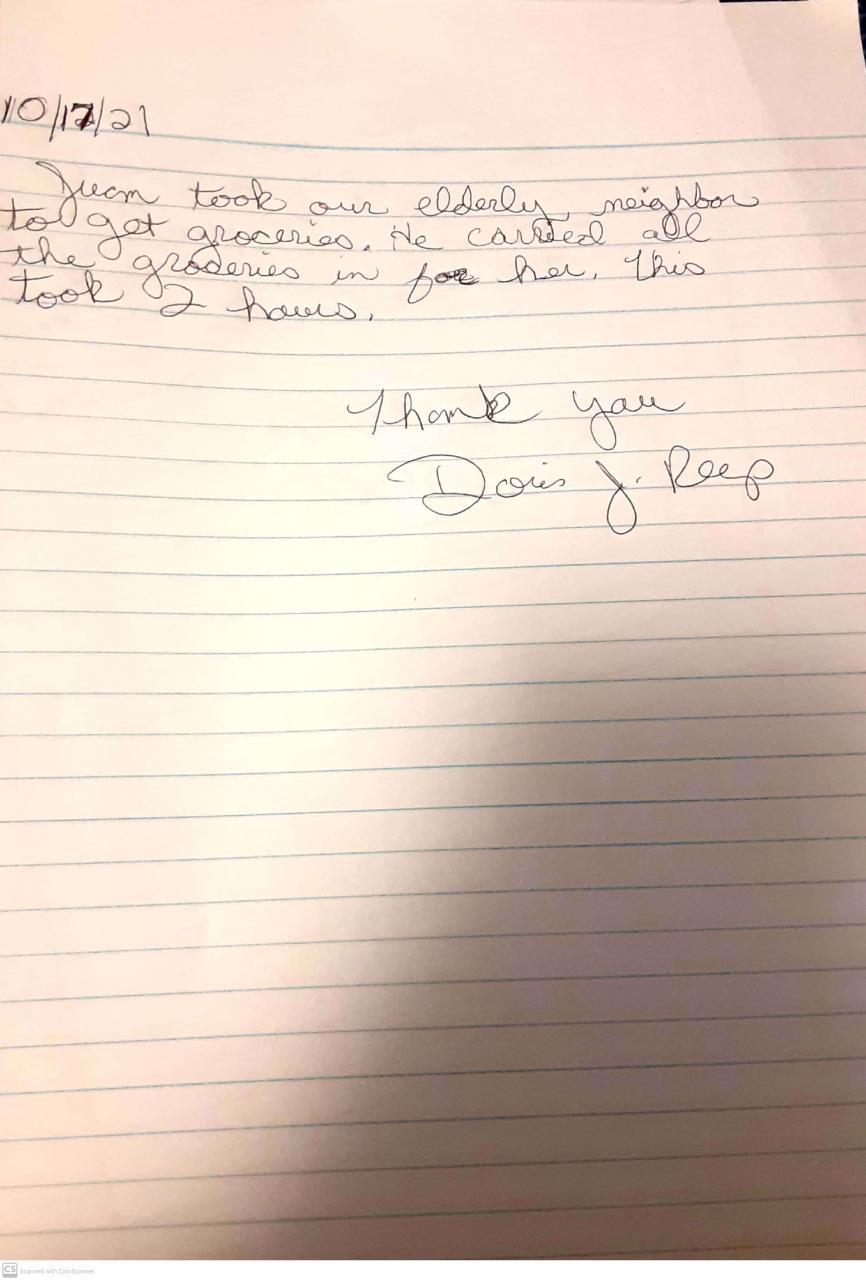 10/17/21
Juan took our elderly neighbor
to get groceries. He carried all
the groceries in for her. This
took 2 hours.
Thank you
Doris J. Reep
CS Scanned with CamScanner